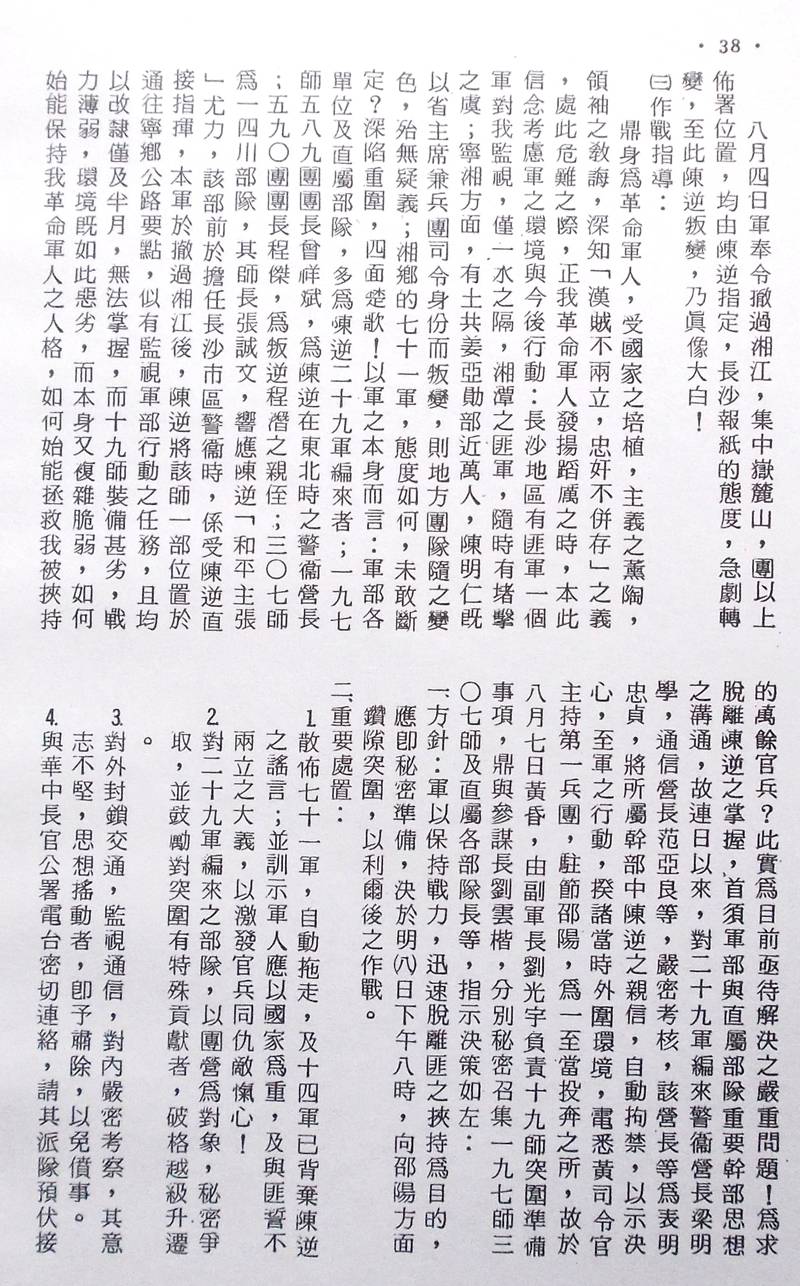 • 38 •
八月四日軍奉令撤過湘江，集中嶽麓山，團以上
佈署位置，均由陳逆指定，長沙報紙的態度，急劇轉
變，至此陳逆叛變，乃眞像大白！
㈢作戰指導：
鼎身爲革命軍人，受國家之培植，主義之薰陶，
領袖之敎誨，深知「漢賊不兩立，忠奸不併存」之義
，處此危難之際，正我革命軍人發揚蹈厲之時，本此
信念考慮軍之環境與今後行動：長沙地區有匪軍一個
軍對我監視，僅一水之隔，湘潭之匪軍，隨時有堵擊
之虞；寧湘方面，有土共姜亞勛部近萬人，陳明仁旣
以省主席兼兵團司令身份而叛變，則地方團隊隨之變
色，殆無疑義；湘鄉的七十一軍，態度如何，未敢斷
定？深陷重圍，四面楚歌！以軍之本身而言：軍部各
單位及直屬部隊，多爲陳逆二十九軍編來者；一九七
師五八九團團長曾祥斌，爲陳逆在東北時之警衞營長
；五九〇團團長程傑，爲叛逆程潛之親侄；三〇七師
爲一四川部隊，其師長張誠文，響應陳逆「和平主張
」尤力，該部前於擔任長沙市區警衞時，係受陳逆直
接指揮，本軍於撤過湘江後，陳逆將該師一部位置於
通往寧鄉公路要點，似有監視軍部行動之任務，且均
以改隸僅及半月，無法掌握，而十九師裝備甚劣，戰
力薄弱，環境旣如此惡劣，而本身又複雜脆弱，如何
始能保持我革命軍人之人格，如何始能拯救我被挾持
的萬餘官兵？此實爲目前亟待解決之嚴重問題！爲求
脫離陳逆之掌握，首須軍部與直屬部隊重要幹部思想
之溝通，故連日以來，對二十九軍編來警衞營長梁明
學，通信營長范亞良等，嚴密考核，該營長等爲表明
忠貞，將所屬幹部中陳逆之親信，自動拘禁，以示決
心，至軍之行動，揆諸當時外圍環境，電悉黃司令官
主持第一兵團，駐節邵陽，爲一至當投奔之所，故於
八月七日黃昏，由副軍長劉光宇負責十九師突圍準備
事項，鼎與參謀長劉雲楷，分別秘密召集一九七師三
〇七師及直屬各部隊長等，指示決策如左：
一、方針：軍以保持戰力，迅速脫離匪之挾持爲目的，
應卽秘密準備，決於明㈧日下午八時，向邵陽方面
鑽隙突圍，以利爾後之作戰。
二、重要處置：
1.散佈七十一軍，自動拖走，及十四軍已背棄陳逆
之謠言；並訓示軍人應以國家爲重，及與匪誓不
兩立之大義，以激發官兵同仇敵愾心！
2.對二十九軍編來之部隊，以團營爲對象，秘密爭
取，並鼓勵對突圍有特殊貢獻者，破格越級升遷
。
3.對外封鎖交通，監視通信，對內嚴密考察，其意
志不堅，思想搖動者，卽予肅除，以免僨事。
4.與華中長官公署電台密切連絡，請其派隊預伏接